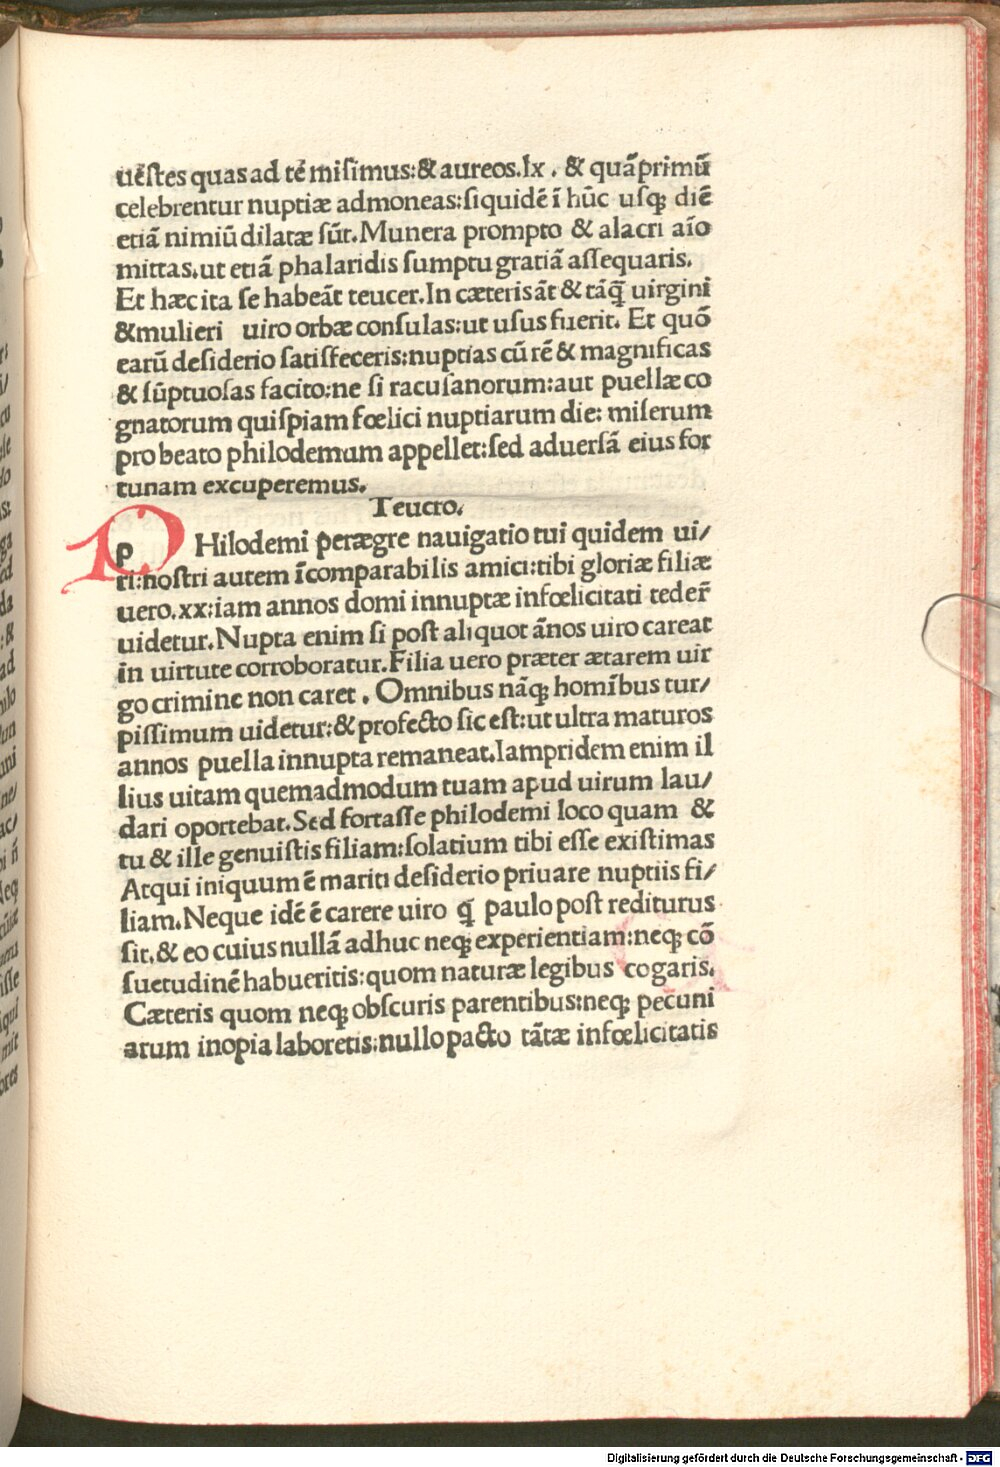 uēstes quas ad tē misimus:& aureos.lx . & quāprimū
celebrentur nuptiæ admoneas:siquidē ī hūc usqꝫ diē
etiā nimiū dilatæ sūt.Munera prompto & alacri aīo
mittas.ut etiā phalaridis sumptu gratiā assequaris.
Et hæc ita se habeāt teucer.In cæteris āt & tāq̄ uirgini
&mulieri uiro orbæ consulas:ut usus fuerit. Et quō
earū desiderio satisfeceris:nuptias cū rē & magnificas
& sūptuosas facito:ne si racusanorum:aut puellæ co
gnatorum quispiam fœlici nuptiarum die: miserum
pro beato philodemum appellet:sed aduersā eius for
tunam excuperemus.
Teucro.
P
p Hilodemi peræegre nauigatio tui quidem ui/
ri:nostri autem īcomparabilis amici:tibi gloriæ filiæ
uero.xx:iam annos domi innuptæ infœlicitati teder̄
uidetur.Nupta enim si post aliquot ānos uiro careat
in uirtute corroboratur.Filia uero præter ætatem uir
go crimine non caret . Omnibus nāqꝫ homībus tur/
pissimum uidetur:& profecto sic est:ut ultra maturos
annos puella innupta remaneat.Iampridem enim il
lius uitam quemadmodum tuam apud uirum lau/
dari oportebat.Sed fortasse philodemi loco quam &
tu & ille genuistis filiam:solatium tibi esse existimas
Atqui iniquum ē mariti desiderio priuare nuptiis fi/
liam.Neque idē ē carere uiro q̄ paulo post rediturus
sit.& eo cuius nullā adhuc neqꝫ experientiam:neqꝫ cō
suetudinē habueritis:quom naturæ legibus cogaris.
Cæteris quom neqꝫ obscuris parentibus:neqꝫ pecuni
arum inopia laboretis:nullo pacto tātæ infœlicitatis
Digitalisierung gefördert durch die Deutsche Forschungsgemeinschaft - DFG